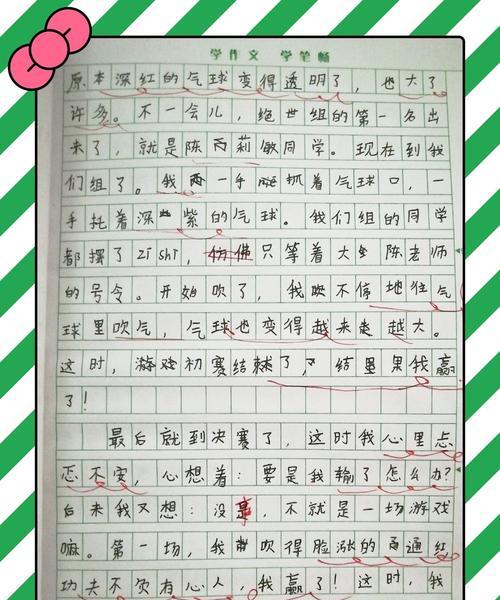 学作文 学笔畅
原本深红的气球变得透明了，也大了
许多。不一会儿，绝世组的第一名出
来了，就是陈丙莉敏同学。现在到我
们组了。我一手抓着气球口，一
手托着深紫的气球。我们组的同学
都摆了zi shi，只等着大陈老师
的号令。开始吹了，我吹不停地往气
球里吹气，气球也变得越来越大。
这时，游戏初赛结束了，结果我赢
了！
最后就到决赛了，这时我心里忐
忑不安，心想着：要是我输了怎么办？
后来我又想：没事，不就是一场游戏
嘛。第一场，我吹得脸涨的通红
功夫不负有心人，我赢了！这时，我